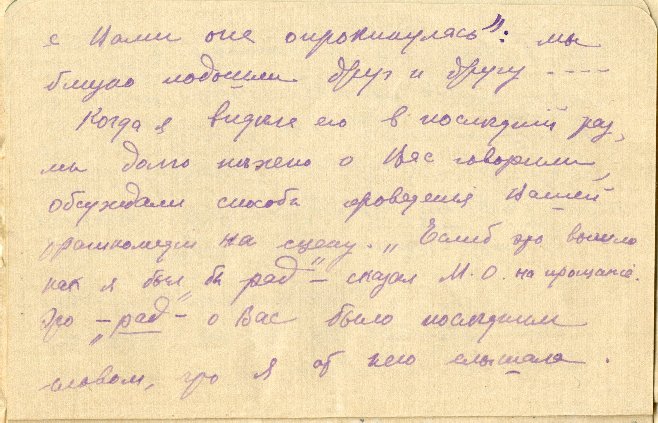 с Вами она опрокинулась": мы
близко подошли друг к другу ----
Когда я видела его в последний раз,
мы долго нежно о Вас говорили,
обсуждали способы проведения Вашей
трагикомедии на сцену. „Еслиб это вышло
как я был бы рад" – сказал М. О. на прощание.
Это – „рад" – о Вас было последним
словом, что я от него слышала.